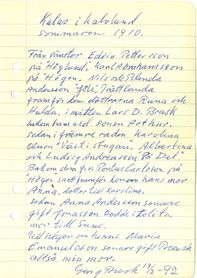 Kalas i Labolund
sommaren 1910.
Från vänster Edvin Pettersson
på Höglund, Karl Abrahamsson
på Högen. Nils och Hilda
Andersson Trättlanda
framför dem döttrarna Runa och
Hulda, i mitten Lars D. Brask
sonen Artur.
sedan i främre raden. Karolina
Olsson "Väst i stugan". Albertina
och Ludvig Andreasson På Del.
Bakom dem fru Carlsson på
Högen framför honom hans mor
Anna, dotter till Karolina.
sedan Anna Andersson senare
gift Jonasson
mor till Sune.
Till höger om henne Maria
Emanuelsson senare gift Brask
alltså min mor.
Georg Brask 17/3 -92